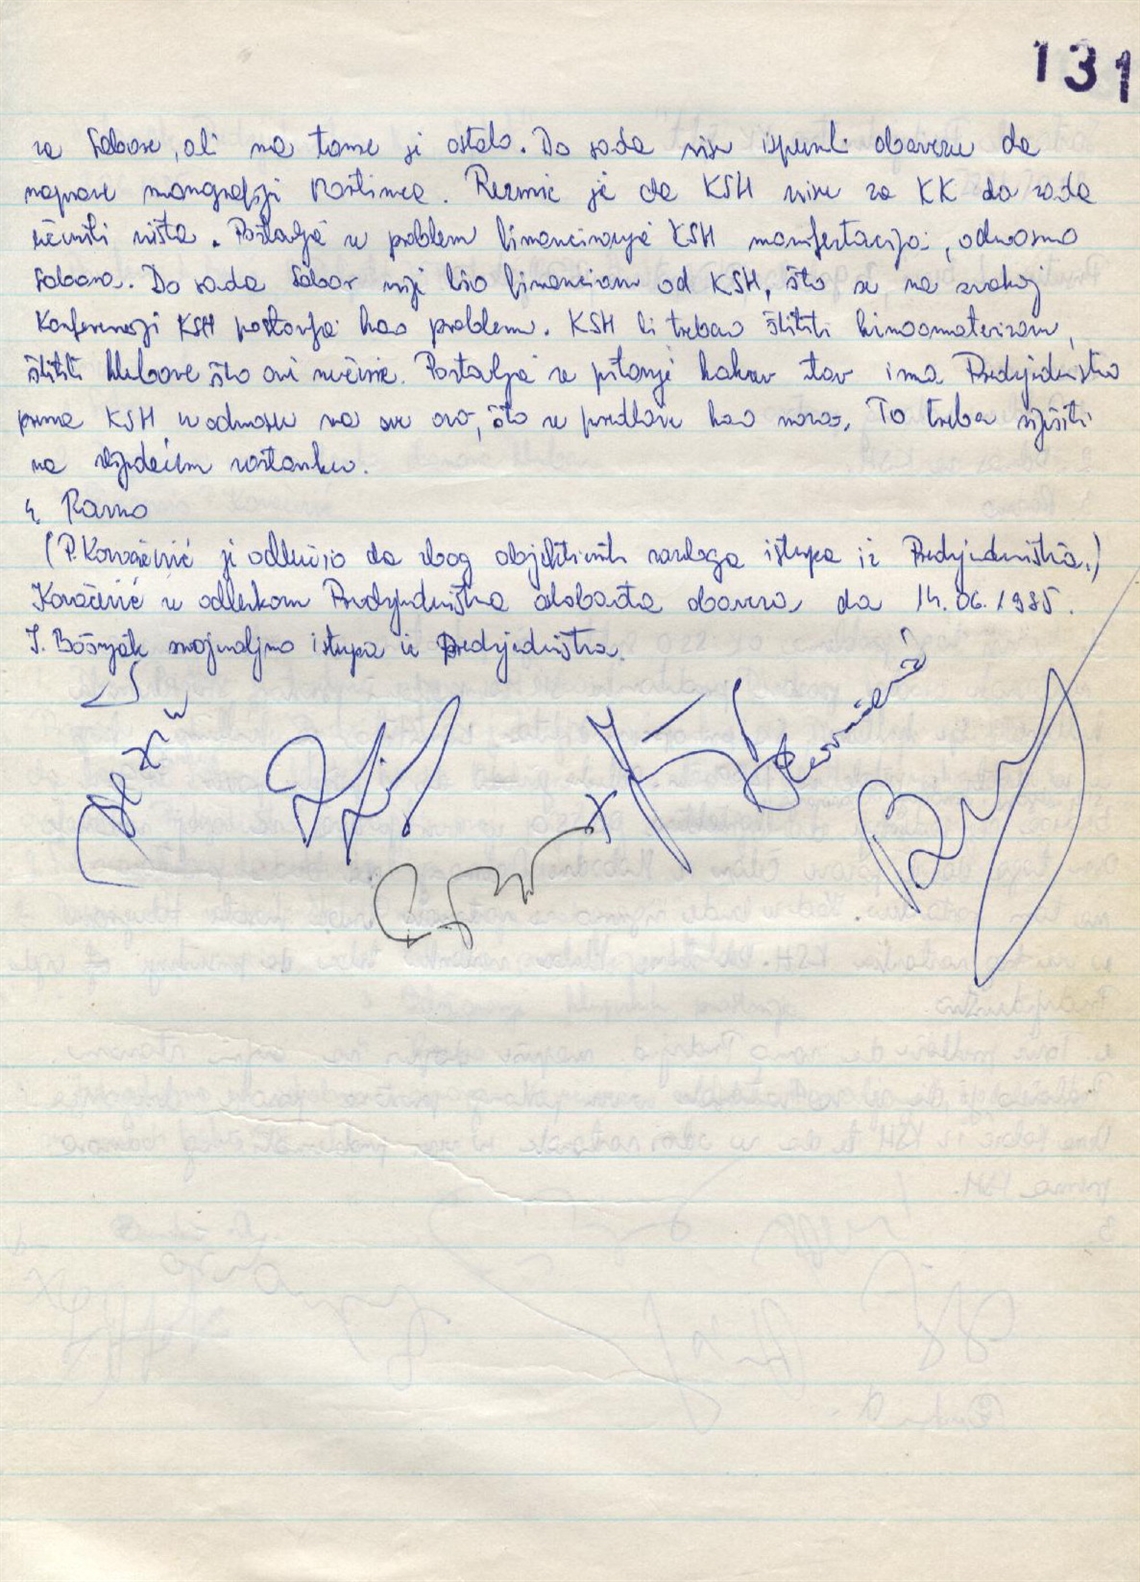 131
za Sabore, ali na tome je ostalo. Do sada nisu ispunili obavezu da
naprave monografiji Martinca. Rezime je da KSH nisu za KK do sada
učinili ništa. Postavlja se problem financiranja KSH manifestacija, odnosno
Sabora. Do sada Sabor nije bio financiran od KSH, što se, na svakoj
Konferenciji KSH postavlja kao problem. KSH bi trebao štititi kinoamaterizam,
štititi klubove što oni ne čine. Postavlja se pitanje kakav stav ima Predsjedništvo
prema KSH u odnosu na sve ovo, što se predlaže kao novo. To treba riješiti
na slijedećem sastanku.
4. Razno
(P. Kovačević je odlučio da zbog objektivnih razloga istupa iz Predsjedništva.)
Kovačević se odlukom Predsjedništva oslobađa obaveza da 14.06.1985.
I. Bošnjak svojevoljno istupa iz Predsjedništva.